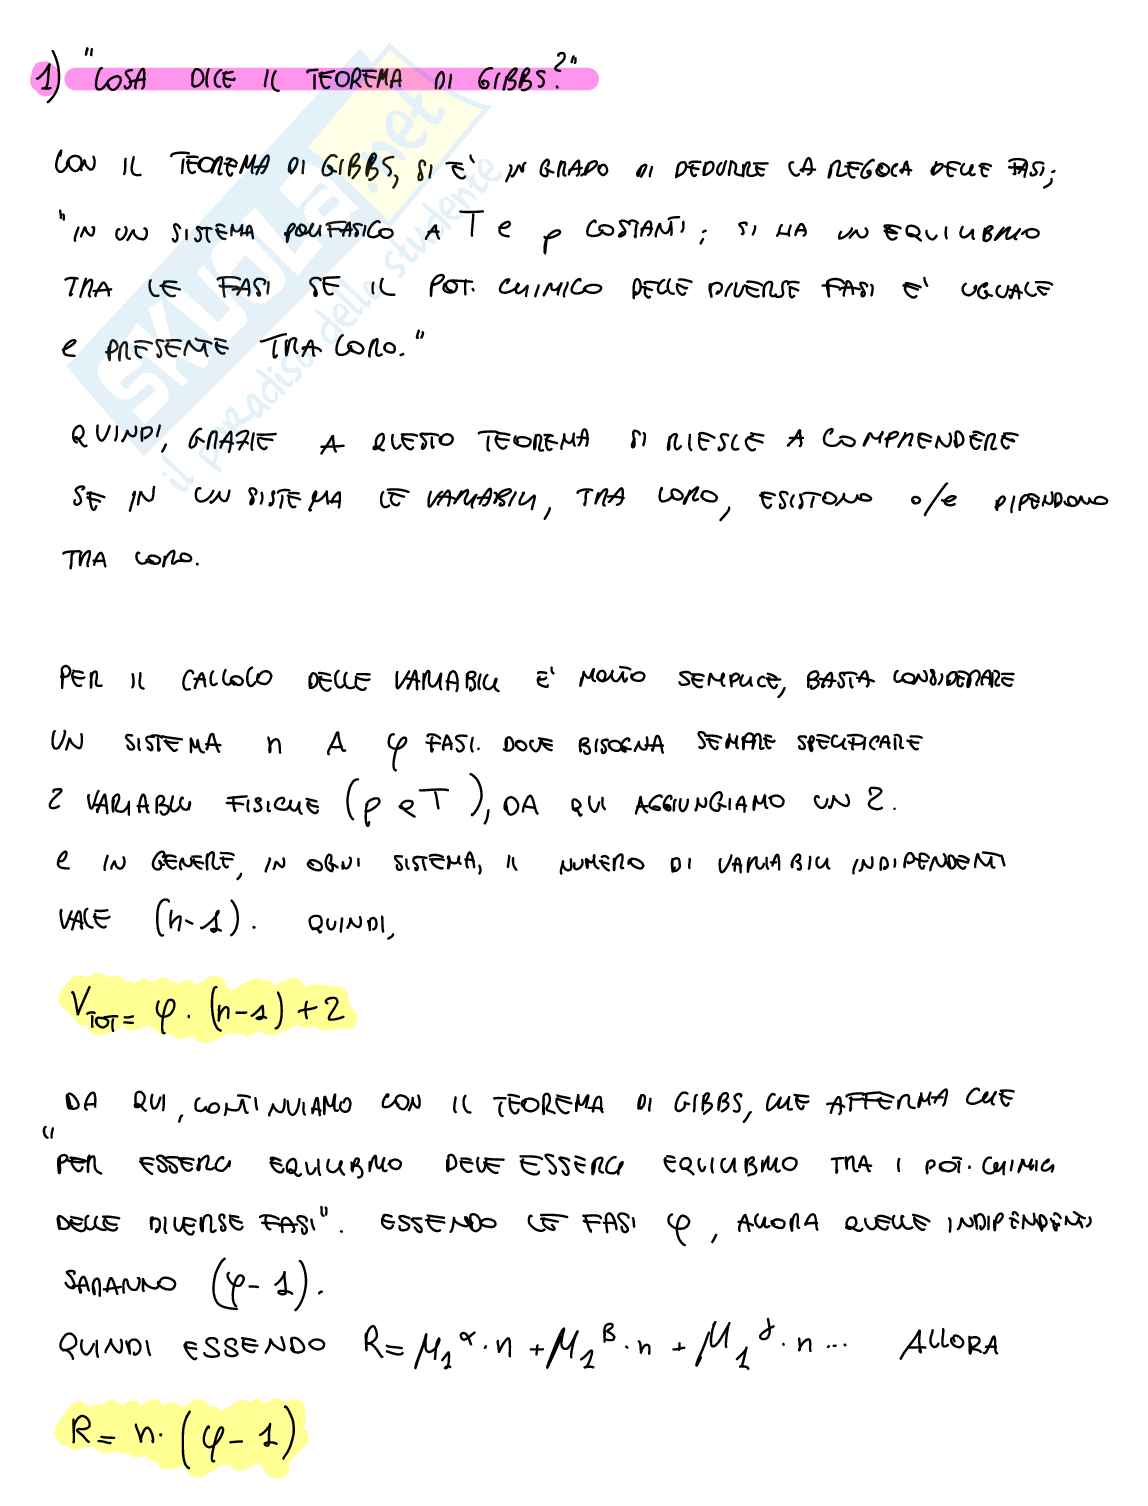 1) "COSA DICE IL TEOREMA DI GIBBS?"
CON IL TEOREMA DI GIBBS, SI E' IN GRADO DI DEDURRE LA REGOLA DELLE FASI;
"IN UN SISTEMA POLIFASICO A T e p COSTANTI; SI HA UN EQUILIBRIO
TRA LE FASI SE IL POT. CHIMICO DELLE DIVERSE FASI E' UGUALE
e PRESENTE TRA LORO."
QUINDI, GRAZIE A QUESTO TEOREMA SI RIESCE A COMPRENDERE
SE IN UN SISTEMA LE VARIABILI, TRA LORO, ESISTONO o/e DIPENDONO
TRA LORO.
PER IL CALCOLO DELLE VARIABILI E' MOLTO SEMPLICE, BASTA CONSIDERARE
UN SISTEMA n A φ FASI. DOVE BISOGNA SEMPRE SPECIFICARE
2 VARIABILI FISICHE (p e T), DA QUI AGGIUNGIAMO UN 2.
e IN GENERE, IN OGNI SISTEMA, IL NUMERO DI VARIABILI INDIPENDENTI
VALE (n-1). QUINDI,
V_TOT = φ · (n-1) + 2
DA QUI, CONTINUIAMO CON IL TEOREMA DI GIBBS, CHE AFFERMA CHE
"PER ESSERCI EQUILIBRIO DEVE ESSERCI EQUILIBRIO TRA I POT. CHIMICI
DELLE DIVERSE FASI". ESSENDO LE FASI φ, ALLORA QUELLE INDIPENDENTI
SARANNO (φ-1).
QUINDI ESSENDO R = μ₁^α · n + μ₁^β · n + μ₁^γ · n ... ALLORA
R = n · (φ-1)
SKUOLA.net
il paradiso dello studente